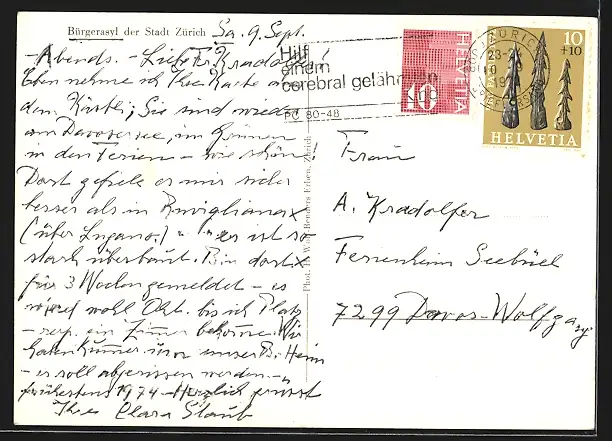 Bürgerasyl der Stadt Zürich
Sa. 9. Sept.
- Abends. - Liebe Fr. Kradolfer!
Eben nehme ich Ihre Karte
dem Kästli; Sie sind wieder
am Davosersee, im Grünen
in den Ferien - wie schön!
Dort gefiele es mir sicher
besser als in Ruvigliana
(über Lugano!) " " es ist so
stark überbaut. Bin dort
für 3 Wochen gemeldet - es
wird wohl Okt. bis ich Platz
- resp. ein Zimmer bekomme. Wir
haben Kummer unser B. Heim
- es soll abgerissen werden -
frühestens 1974 - Herzlich grüsst
Ihre Clara Staub
Hilf
einem
cerebral gelähmten
PC 80-48
HELVETIA
10
ZÜRICH
BRIEFVERSAND
10
+10
HELVETIA
Phot. H. Wolf-Benders Erben, Zürich
Frau
A. Kradolfer
Ferienheim Seebüel
7299 Davos-Wolfgang